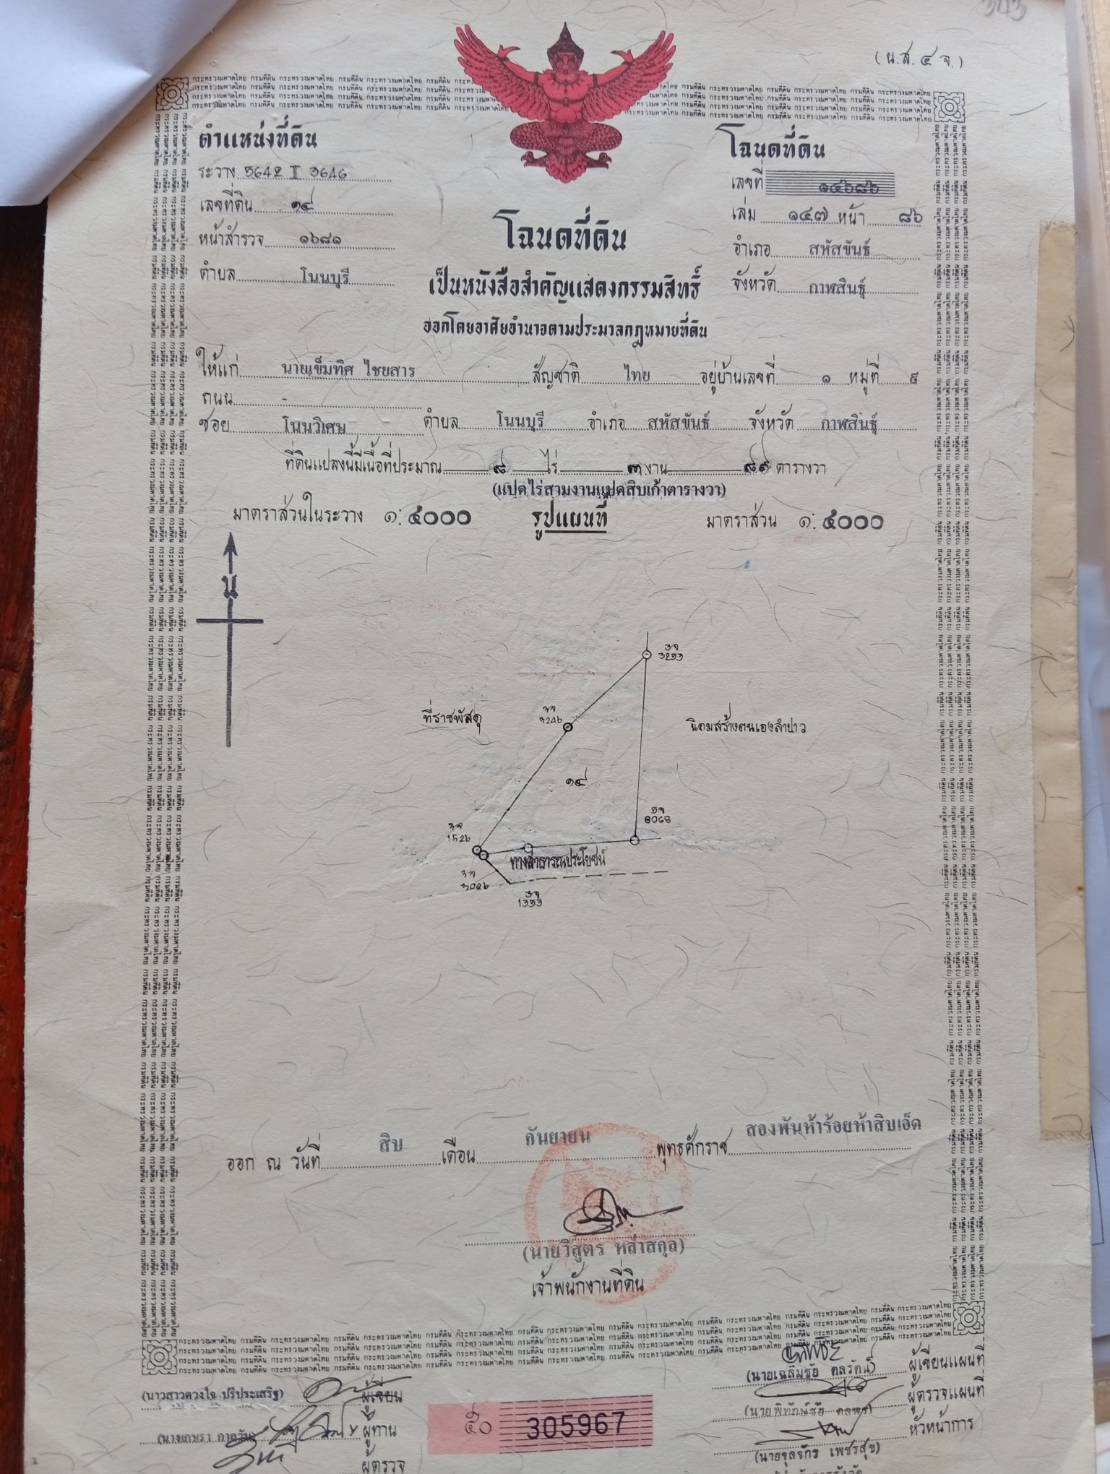 (น.ส.๔ จ.)
ตำแหน่งที่ดิน
ระวาง 5642 II 3646
เลขที่ดิน ๑๔
หน้าสำรวจ ๑๖๘๑
ตำบล โนนบุรี
โฉนดที่ดิน
เลขที่ ๑๔๖๘๖
เล่ม ๑๔๗ หน้า ๘๖
อำเภอ สหัสขันธ์
จังหวัด กาฬสินธุ์
โฉนดที่ดิน
เป็นหนังสือสำคัญแสดงกรรมสิทธิ์
ออกโดยอาศัยอำนาจตามประมวลกฎหมายที่ดิน
ให้แก่ นายเข็มทิศ ไชยสาร สัญชาติ ไทย อยู่บ้านเลขที่ ๑ หมู่ที่ ๕
ถนน -
ซอย โนนวิเศษ ตำบล โนนบุรี อำเภอ สหัสขันธ์ จังหวัด กาฬสินธุ์
ที่ดินแปลงนี้มีเนื้อที่ประมาณ ๘ ไร่ ๓ งาน ๘๙ ตารางวา
(แปดไร่สามงานแปดสิบเก้าตารางวา)
มาตราส่วนในระวาง ๑:๔๐๐๐ รูปแผนที่ มาตราส่วน ๑:๔๐๐๐
น
ที่ราชพัสดุ
นิคมสร้างตนเองลำปาว
๑๔
ทางสาธารณประโยชน์
ออก ณ วันที่ สิบ เดือน กันยายน พุทธศักราช สองพันห้าร้อยห้าสิบเอ็ด
(นายวิสูตร หล่ำสกุล)
เจ้าพนักงานที่ดิน
(นางสาวดวงใจ ปรีประเสริฐ) ผู้เขียน
ผู้ทาน
ผู้ตรวจ
๕๐ 305967
ผู้เขียนแผนที่
ผู้ตรวจแผนที่
หัวหน้าการ
(นายจุลจักร เพชรสุข)